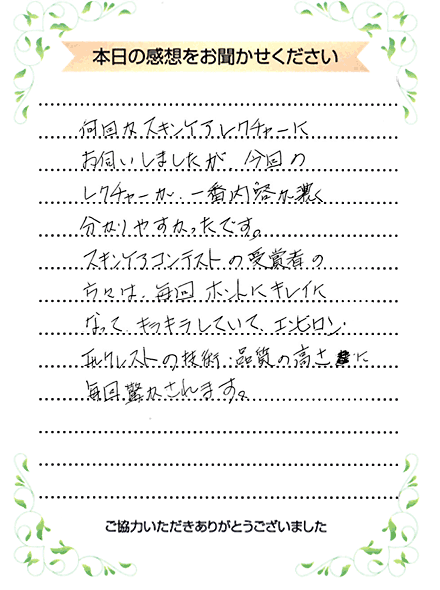 本日の感想をお聞かせください
何回かスキンケアレクチャーに
お伺いしましたが、今回の
レクチャーが、一番内容が濃く
分かりやすかったです。
スキンケアコンテストの受賞者の
方々は、毎回ホントにキレイに
なって、キラキラしていて、エンビロン・
エルクレストの技術・品質の高さに
毎回驚かされます。
ご協力いただきありがとうございました